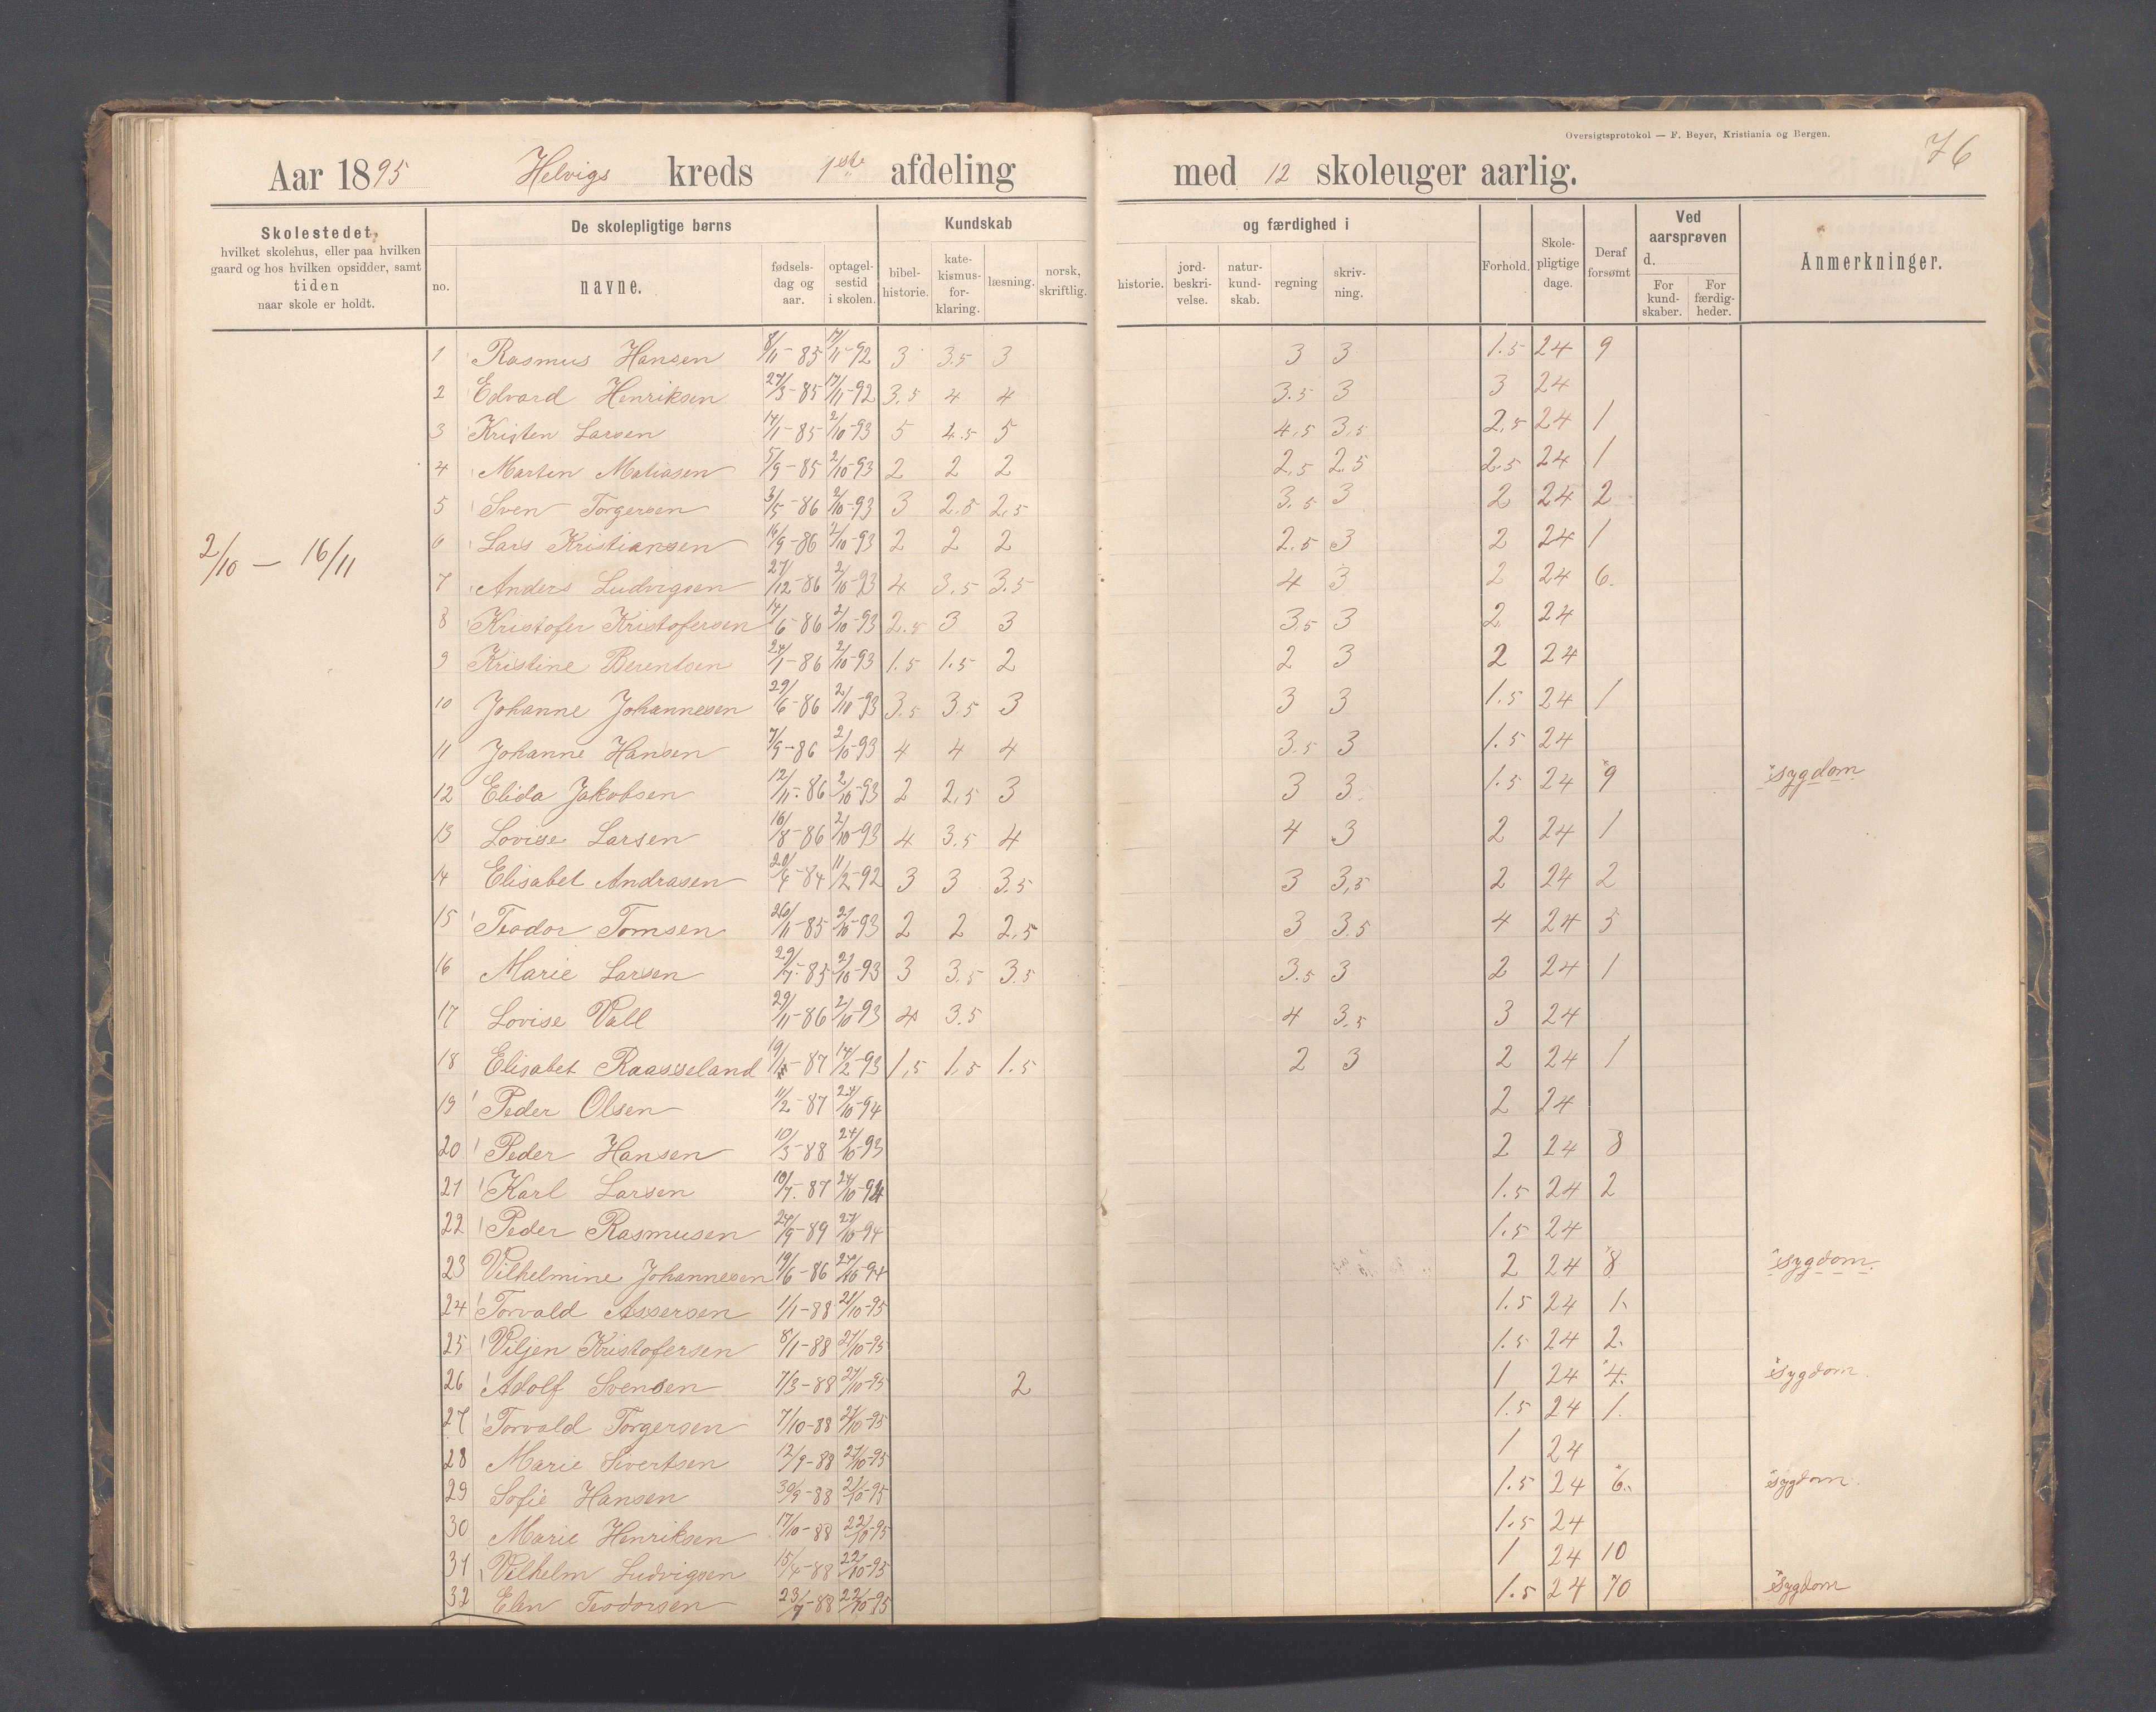 Oversigtsprotokol — F. Beyer, Kristiania og Bergen.
76
Aar 1895 Helvigs kreds 1ste afdeling med 12 skoleuger aarlig.
Skolestedet, hvilket skolehus, eller paa hvilken gaard og hos hvilken opsidder, samt tiden naar skole er holdt.
De skolepligtige børns
no. navne. fødsels-dag og aar. optagel-sestid i skolen.
Kundskab og færdighed i
bibel-historie. kate-kismus-for-klaring. læsning. norsk, skriftlig. historie. jord-beskri-velse. natur-kund-skab. regning skriv-ning.
Forhold. Skole-pligtige dage. Deraf forsømt
Ved aarsprøven d.
For kund-skaber. For færdig-heder.
Anmerkninger.
2/10 — 16/11
1 Rasmus Hansen 8/11-85 17/11-92 3 3.5 3 3 3 1.5 24 9
2 Edvard Henriksen 27/3-85 17/11-92 3.5 4 4 3.5 3 3 24
3 Kristen Larsen 14/1-85 2/10-93 5 4.5 5 4.5 3.5 2.5 24 1
4 Martin Matiasen 5/9-85 2/10-93 2 2 2 2.5 2.5 2.5 24 1
5 Sven Torgersen 3/5-86 2/10-93 3 2.5 2.5 3.5 3 2 24 2
6 Lars Kristiansen 16/9-86 2/10-93 2 2 2 2.5 3 2 24 1
7 Anders Ludvigsen 27/12-86 2/10-93 4 3.5 3.5 4 3 2 24 6
8 Kristofer Kristofersen 14/6-86 2/10-93 2.5 3 3 3.5 3 2 24
9 Kristine Berentsen 24/1-86 2/10-93 1.5 1.5 2 2 3 2 24
10 Johanne Johannesen 29/6-86 2/10-93 3.5 3.5 3 3 3 1.5 24 1
11 Johanne Hansen 7/9-86 2/10-93 4 4 4 3.5 3 1.5 24
12 Elida Jakobsen 12/11-86 2/10-93 2 2.5 3 3 3 1.5 24 9 sygdom
13 Lovise Larsen 16/8-86 2/10-93 4 3.5 4 4 3 2 24 1
14 Elisabet Andrasen 20/4-84 11/2-92 3 3 3.5 3 3.5 2 24 2
15 Teodor Tomsen 26/11-85 2/10-93 2 2 2.5 3 3.5 4 24 5
16 Marie Larsen 29/7-85 2/10-93 3 3.5 3.5 3.5 3 2 24 1
17 Lovise Vall 29/11-86 2/10-93 4 3.5 4 3.5 3 24
18 Elisabet Raasseland 19/5-87 14/2-93 1.5 1.5 1.5 2 3 2 24 1
19 Peder Olsen 11/2-87 24/10-94 2 24
20 Peder Hansen 10/3-88 24/10-93 2 24 8
21 Karl Larsen 10/7-87 24/10-94 1.5 24 2
22 Peder Rasmusen 24/9-89 24/10-94 1.5 24
23 Vilhelmine Johannesen 19/6-86 24/10-94 2 24 8 sygdom.
24 Torvald Assersen 1/1-88 21/10-95 1.5 24 1
25 Viljen Kristofersen 8/1-88 21/10-95 1.5 24 2
26 Adolf Svensen 7/3-88 21/10-95 2 1 24 4 sygdom
27 Torvald Torgersen 7/10-88 21/10-95 1.5 24 1
28 Marie Sivertsen 12/9-88 21/10-95 1 24
29 Sofie Hansen 30/9-88 21/10-95 1.5 24 6 sygdom
30 Marie Henriksen 17/10-88 22/10-95 1.5 24
31 Vilhelm Ludvigsen 15/4-88 22/10-95 1 24 10
32 Elen Teodorsen 23/7-88 22/10-95 1.5 24 10 sygdom